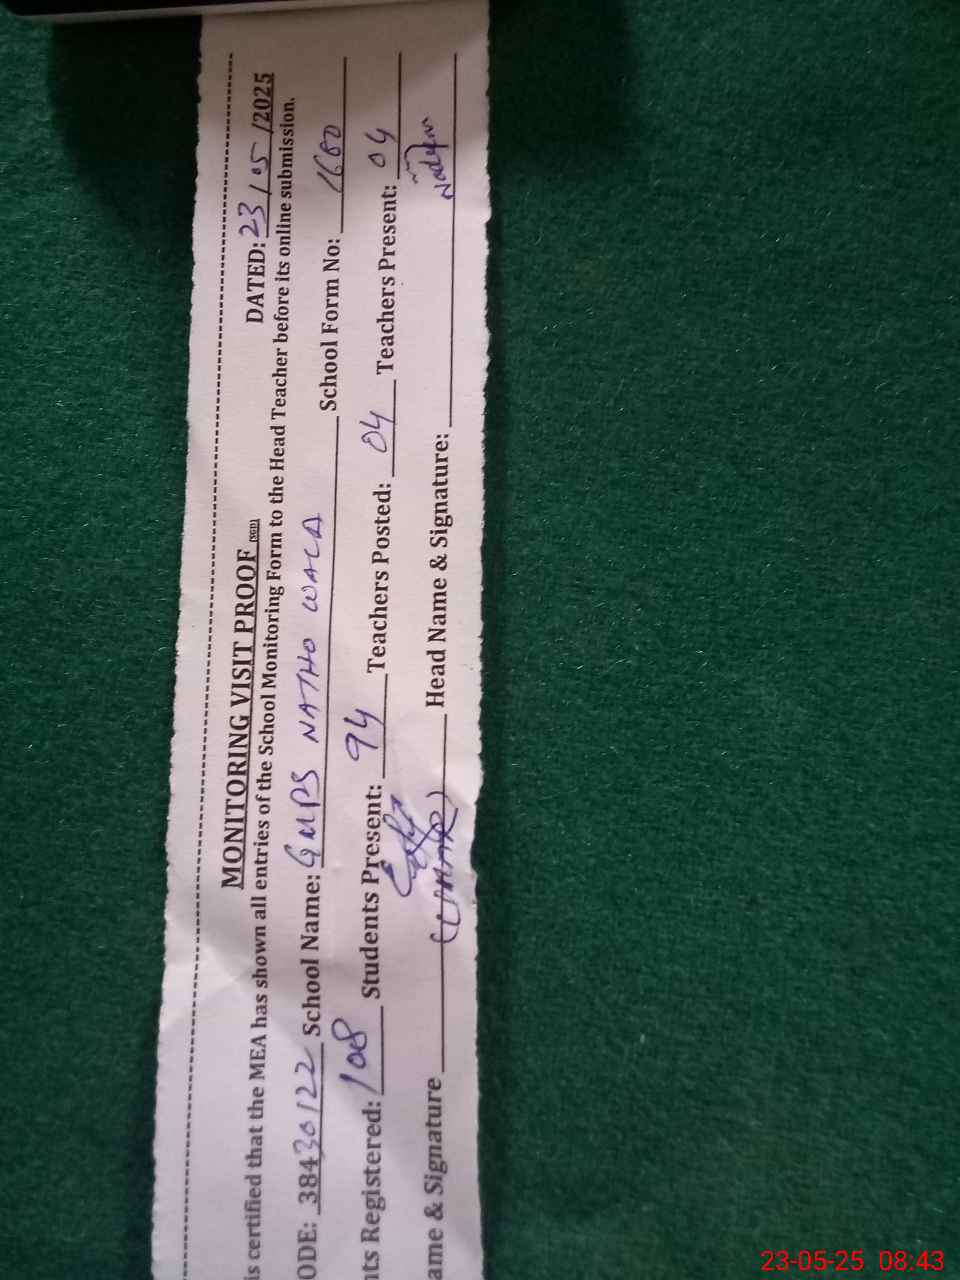 MONITORING VISIT PROOF (SGD) DATED: 23/05/2025
is certified that the MEA has shown all entries of the School Monitoring Form to the Head Teacher before its online submission.
ODE: 38430122 School Name: GMPS NATHO WALA School Form No: 1680
nts Registered: 108 Students Present: 94 Teachers Posted: 04 Teachers Present: 04
ame & Signature (UMAR) Head Name & Signature: Nadeem
23-05-25 08:43